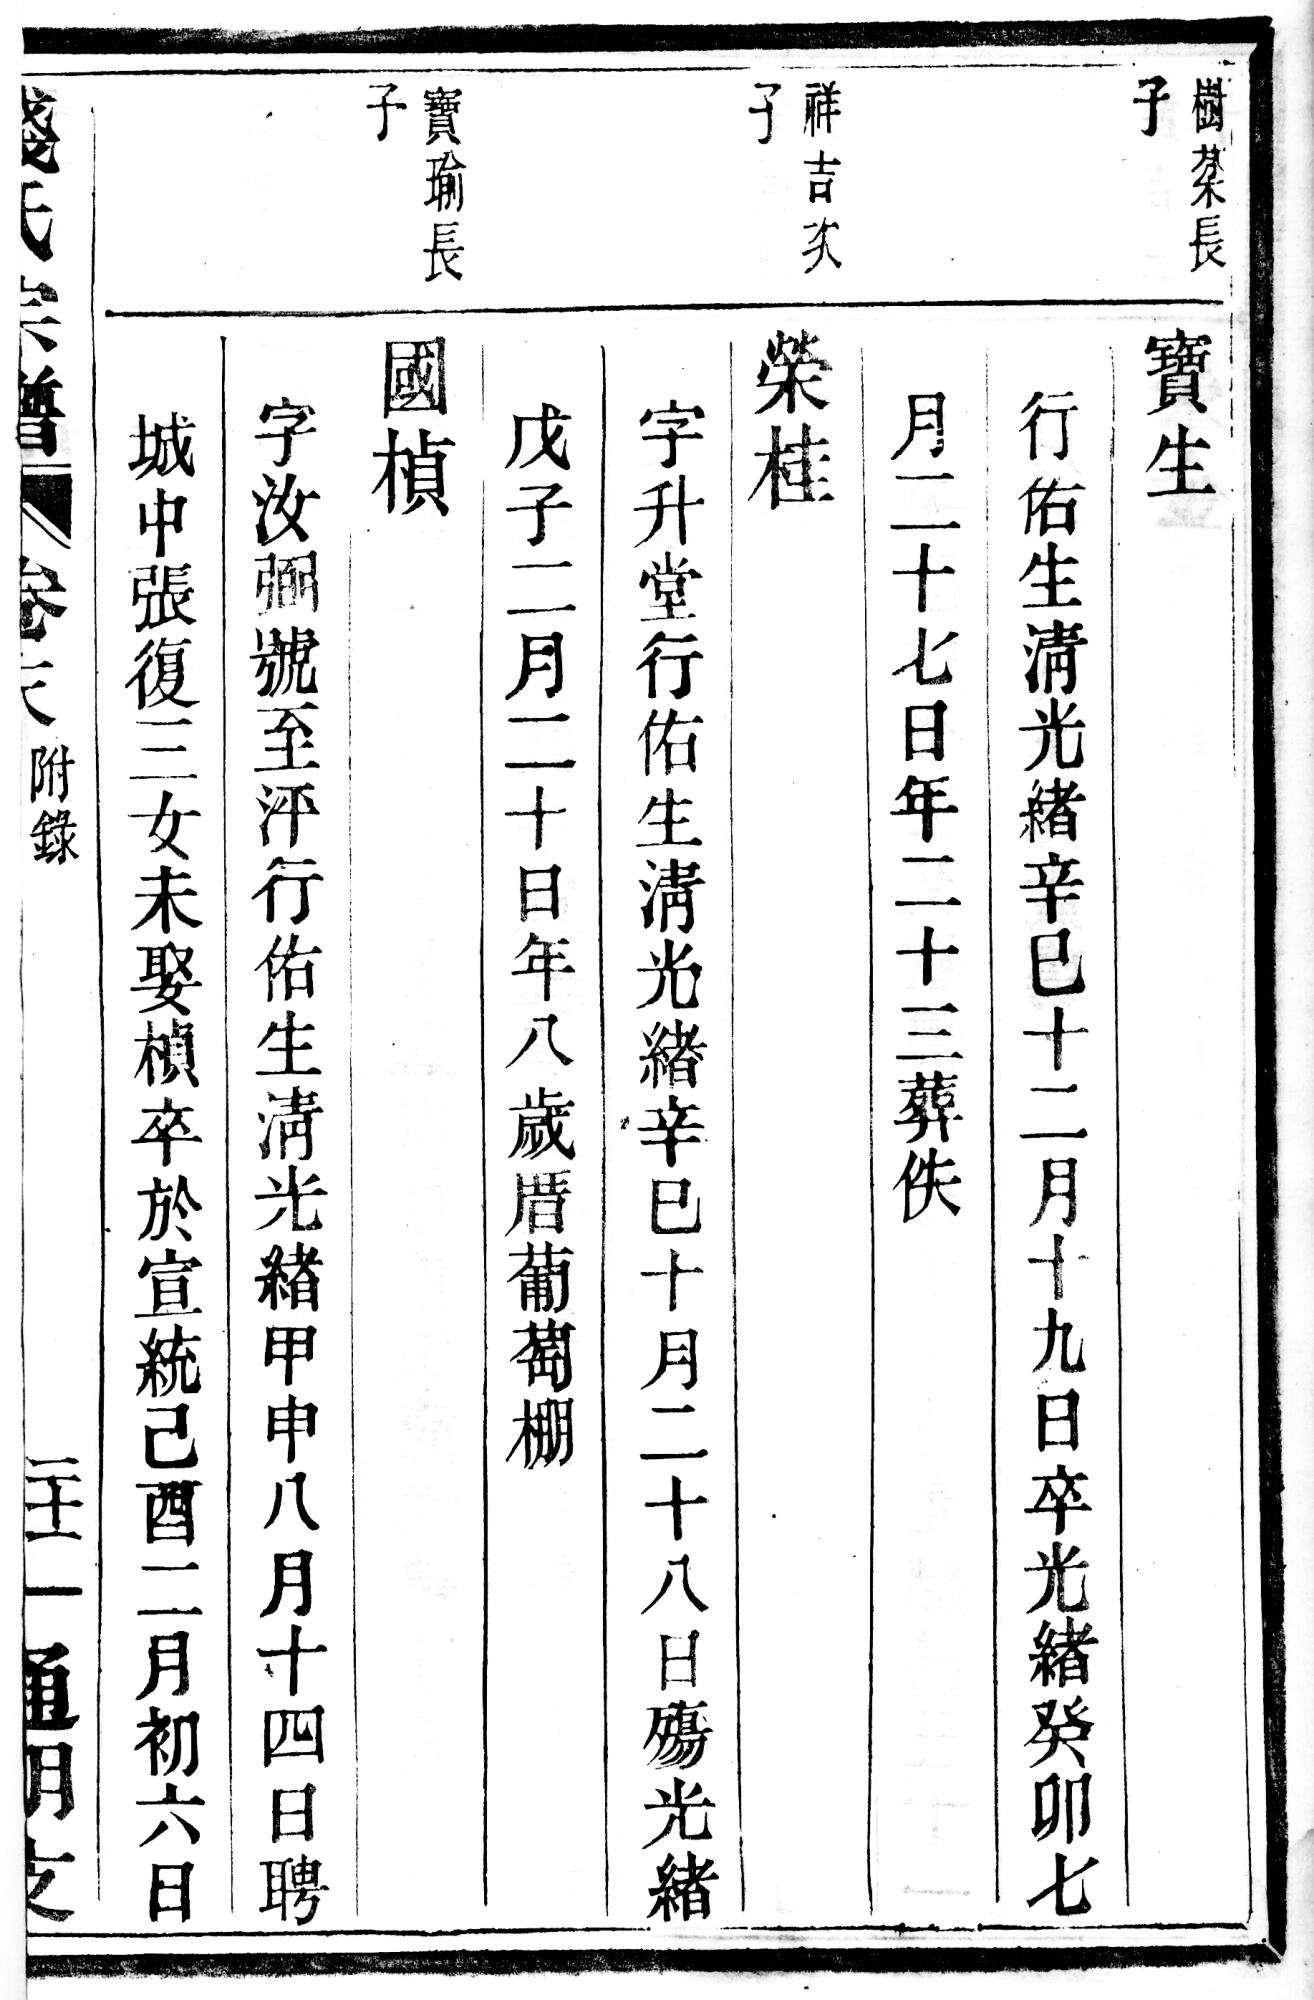 樹棻長
子
寶生
行佑生清光緒辛巳十二月十九日卒光緒癸卯七
月二十七日年二十三葬佚
祥吉次
子
榮桂
字升堂行佑生清光緒辛巳十月二十八日殤光緒
戊子二月二十日年八歲厝葡萄棚
寶瑜長
子
國楨
字汝弼號至泙行佑生清光緒甲申八月十四日聘
城中張復三女未娶楨卒於宣統己酉二月初六日
錢氏宗譜 卷末 附錄 通明支